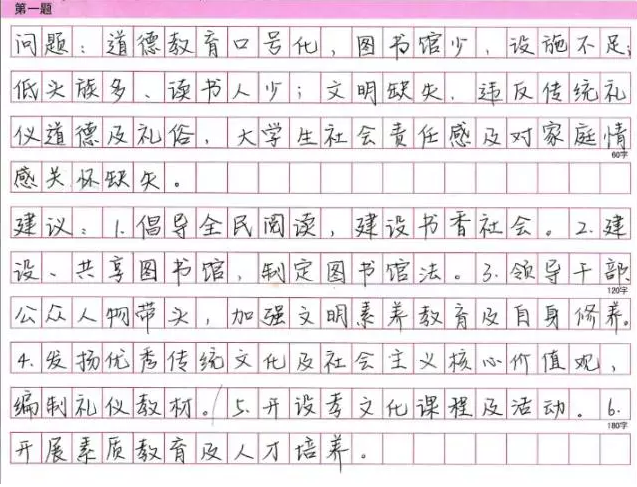 第一题
问题：道德教育口号化，图书馆少、设施不足；
低头族多、读书人少；文明缺失、违反传统礼
仪道德及礼俗，大学生社会责任感及对家庭情
60字
感关怀缺失。
建议：1.倡导全民阅读，建设书香社会。2.建
设、共享图书馆，制定图书馆法。3.领导干部
120字
公众人物带头，加强文明素养教育及自身修养。
4.发扬优秀传统文化及社会主义核心价值观，
编制礼仪教材。5.开设孝文化课程及活动。6.
180字
开展素质教育及人才培养。